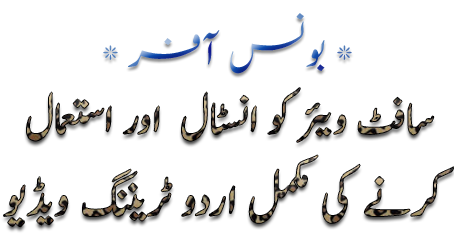 * بونس آفر *
سافٹ ویئر کو انسٹال اور استعمال
کرنے کی مکمل اردو ٹریننگ ویڈیو